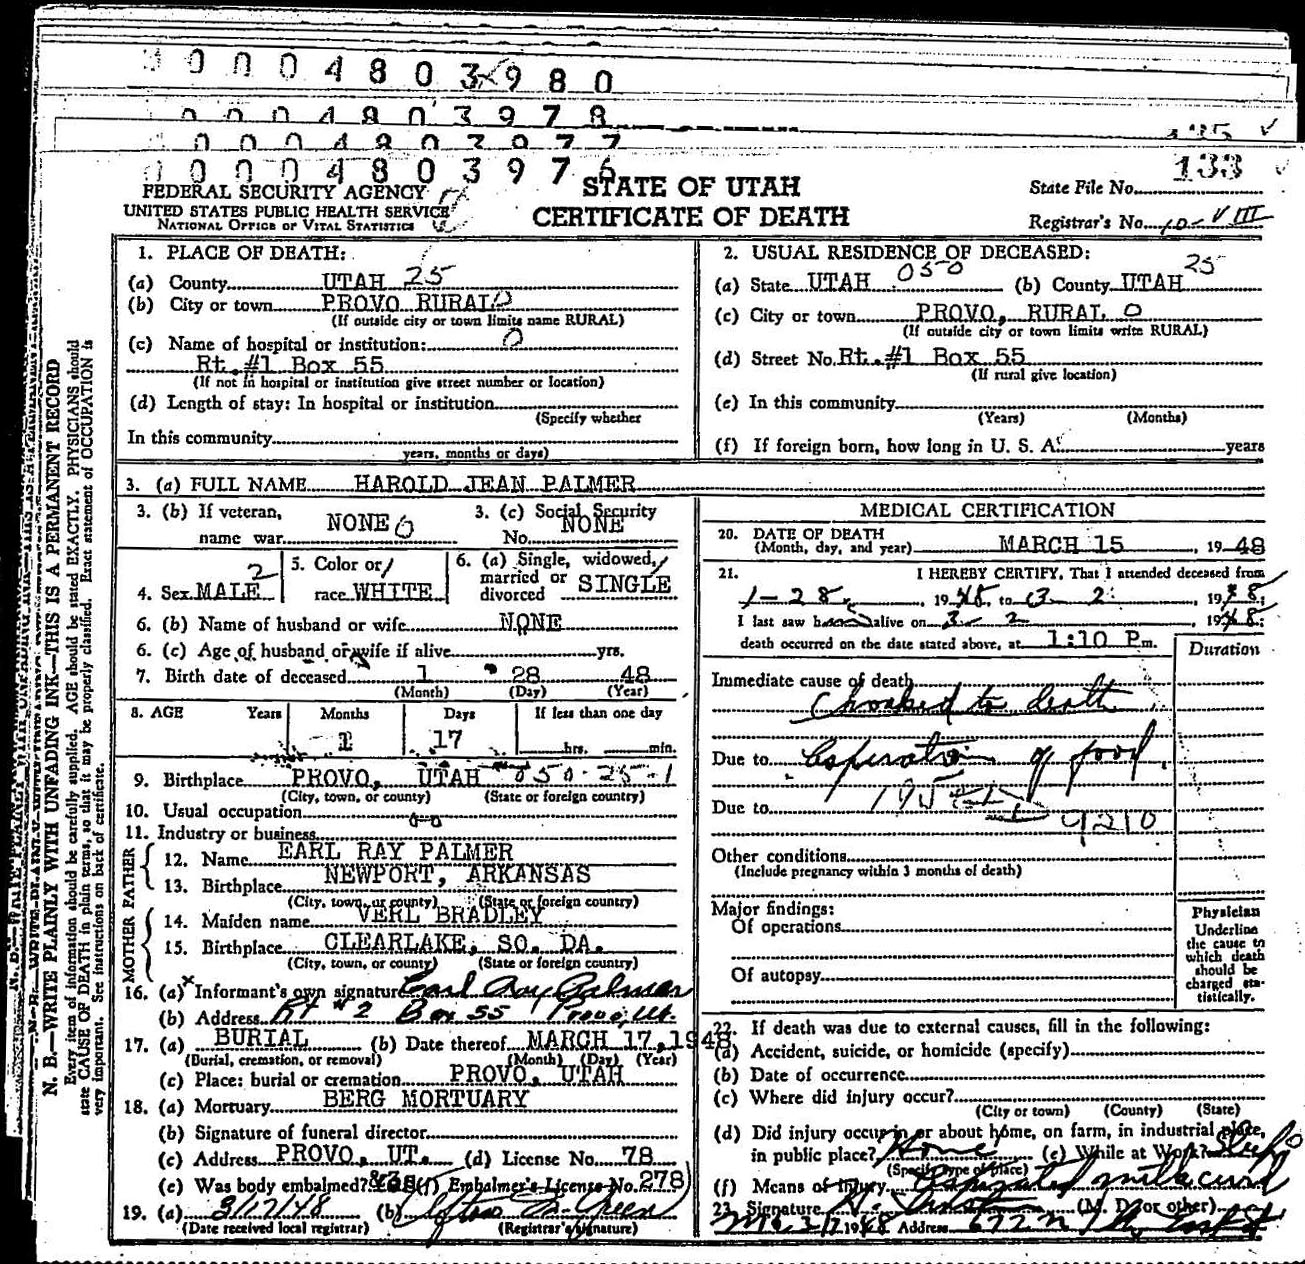 0 0 0 4 8 0 3 9 8 0
0 0 0 4 8 0 3 9 7 8
0 0 0 4 8 0 3 9 7 7
135
0 0 0 0 4 8 0 3 9 7 6
133
FEDERAL SECURITY AGENCY
UNITED STATES PUBLIC HEALTH SERVICE
NATIONAL OFFICE OF VITAL STATISTICS
STATE OF UTAH
CERTIFICATE OF DEATH
State File No.
Registrar's No. 10-VIII
1. PLACE OF DEATH:
(a) County UTAH 25
(b) City or town PROVO RURAL 0
(If outside city or town limits name RURAL)
(c) Name of hospital or institution: 0
Rt. #1 Box 55
(If not in hospital or institution give street number or location)
(d) Length of stay: In hospital or institution
(Specify whether
In this community
years, months or days)
2. USUAL RESIDENCE OF DECEASED:
(a) State UTAH 050 (b) County UTAH 25
(c) City or town PROVO, RURAL 0
(If outside city or town limits write RURAL)
(d) Street No. Rt. #1 Box 55
(If rural give location)
(e) In this community
(Years) (Months)
(f) If foreign born, how long in U. S. A. years
3. (a) FULL NAME HAROLD JEAN PALMER
3. (b) If veteran, name war NONE 0
3. (c) Social Security No. NONE
4. Sex MALE 2
5. Color or race WHITE
6. (a) Single, widowed, married or divorced SINGLE
6. (b) Name of husband or wife NONE
6. (c) Age of husband or wife if alive yrs.
7. Birth date of deceased 1 28 48
(Month) (Day) (Year)
8. AGE Years Months Days If less than one day
1 17 hrs. min.
9. Birthplace PROVO, UTAH 050-25-1
(City, town, or county) (State or foreign country)
10. Usual occupation
11. Industry or business
FATHER
12. Name EARL RAY PALMER
13. Birthplace NEWPORT, ARKANSAS
(City, town, or county) (State or foreign country)
MOTHER
14. Maiden name VERL BRADLEY
15. Birthplace CLEARLAKE, SO. DA.
(City, town, or county) (State or foreign country)
16. (a) x Informant's own signature Earl Ray Palmer
(b) Address Rt #2 Box 55 Provo, Ut.
17. (a) BURIAL (b) Date thereof MARCH 17, 1948
(Burial, cremation, or removal) (Month) (Day) (Year)
(c) Place: burial or cremation PROVO, UTAH
18. (a) Mortuary BERG MORTUARY
(b) Signature of funeral director
(c) Address PROVO, UT. (d) License No. 78
(e) Was body embalmed? (f) Embalmer's License No. 278
19. (a) 3/17/48 (b)
(Date received local registrar) (Registrar's signature)
MEDICAL CERTIFICATION
20. DATE OF DEATH
(Month, day, and year) MARCH 15, 1948
21. I HEREBY CERTIFY, That I attended deceased from
1-28, 1948 to 3 2, 1948;
I last saw h alive on 3-2, 1948;
death occurred on the date stated above, at 1:10 P m.
Duration
Immediate cause of death
Choaked to death
Due to Aspiration of food
195
Due to
9210
Other conditions
(Include pregnancy within 3 months of death)
Major findings:
Of operations
Of autopsy
Physician
Underline
the cause to
which death
should be
charged sta-
tistically.
22. If death was due to external causes, fill in the following:
(a) Accident, suicide, or homicide (specify)
(b) Date of occurrence
(c) Where did injury occur?
(City or town) (County) (State)
(d) Did injury occur in or about home, on farm, in industrial place,
in public place? Home (e) While at Work?
(Specify type of place)
(f) Means of Injury Aspirated milk curd
23. Signature (M. D. or other)
1948 Address
N. B.—WRITE PLAINLY WITH UNFADING INK—THIS IS A PERMANENT RECORD
Every item of information should be carefully supplied. AGE should be stated EXACTLY. PHYSICIANS should
state CAUSE OF DEATH in plain terms, so that it may be properly classified. Exact statement of OCCUPATION is
very important. See instructions on back of certificate.